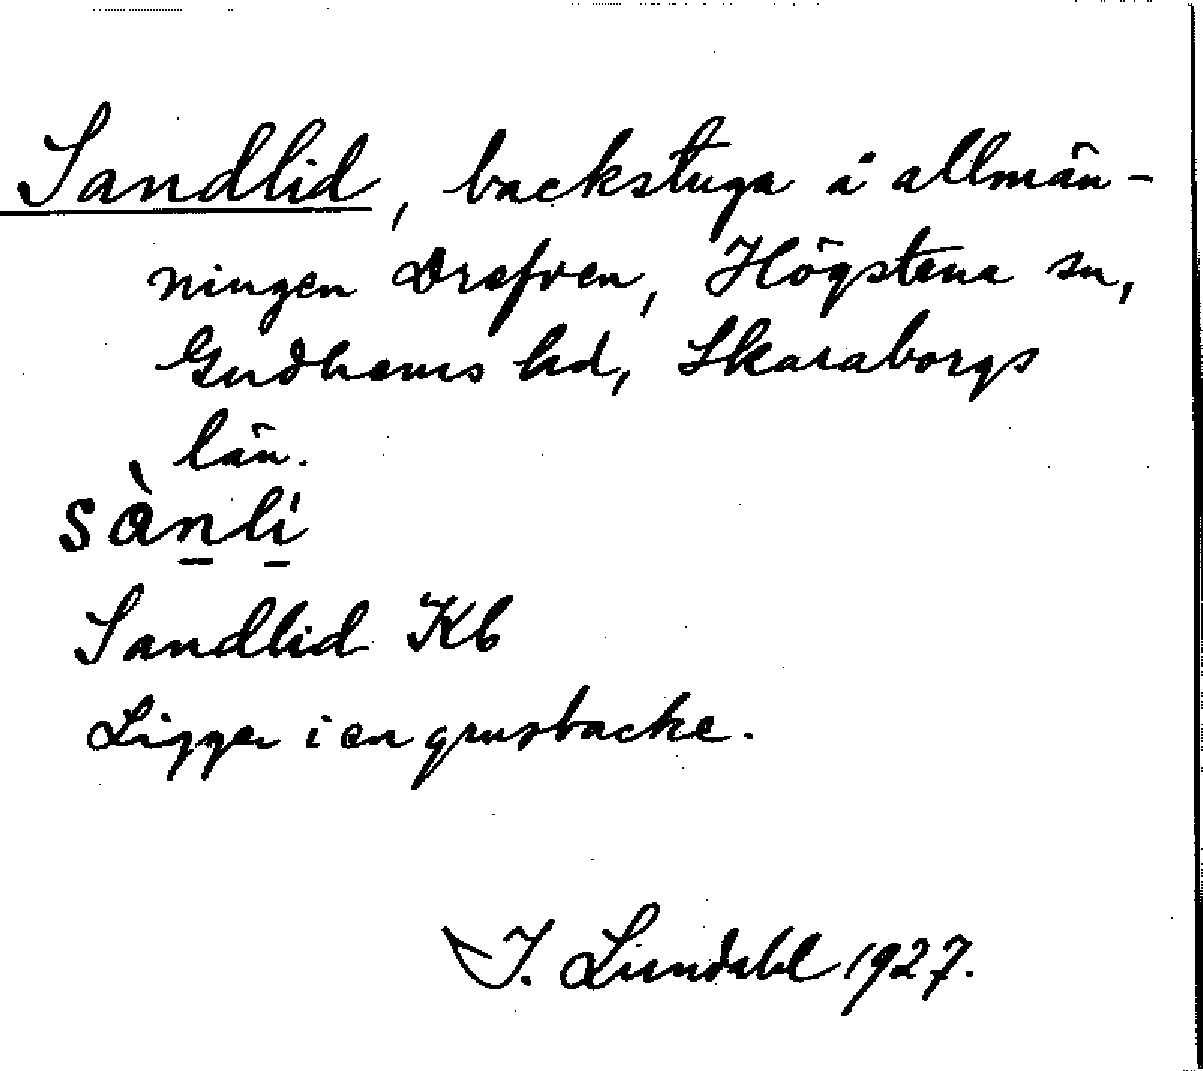 Sandlid, backstuga å allmän-
ningen Drafven, Högstena sn,
Gudhems hd, Skaraborgs
län.
sànli
Sandlid Kb
Ligger i en grusbacke.
I. Lundahl 1927.